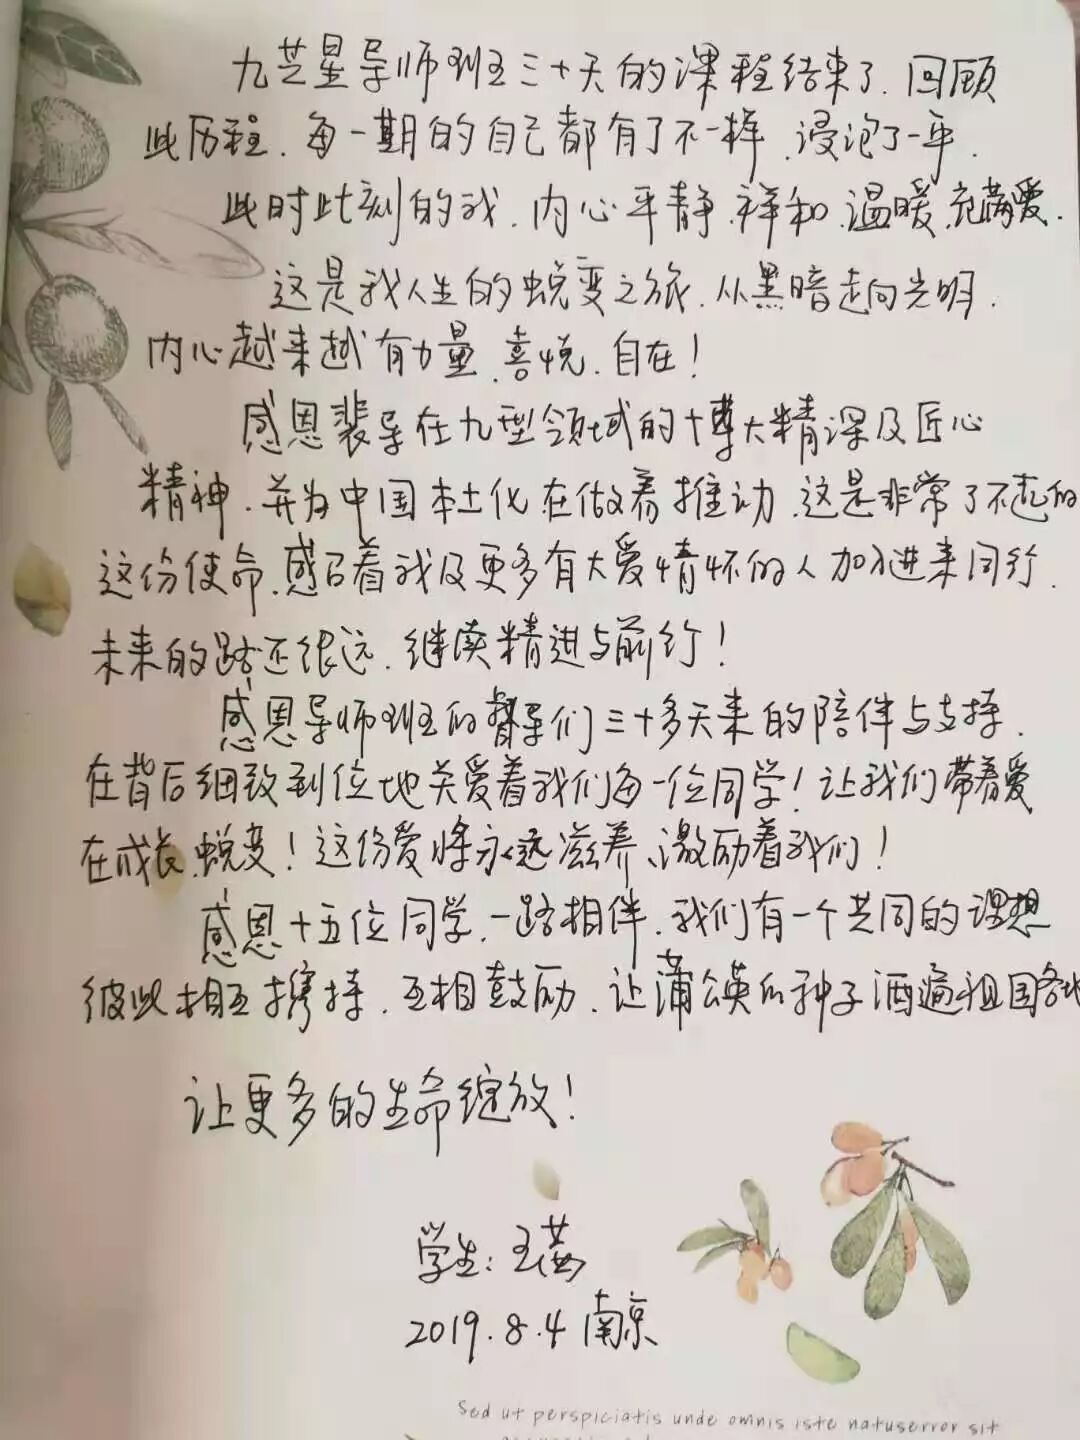 九芒星导师班三十天的课程结束了.回顾
此历程.每一期的自己都有了不一样.浸泡了一年.
此时此刻的我.内心平静.祥和.温暖.充满爱.
这是我人生的蜕变之旅.从黑暗走向光明.
内心越来越有力量.喜悦.自在!
感恩裴导在九型领域的博大精深及匠心
精神.并为中国本土化在做着推动.这是非常了不起的
这份使命.感召着我及更多有大爱情怀的人加入进来同行.
未来的路还很远.继续精进与前行!
感恩导师班的督导们三十多天来的陪伴与支持.
在背后细致到位地关爱着我们每一位同学!让我们带着爱
在成长.蜕变!这份爱将永远滋养、激励着我们!
感恩十五位同学.一路相伴.我们有一个共同的理想
彼此相互携持.互相鼓励.让蒲公英的种子洒遍祖国各地
让更多的生命绽放!
学生:王茜
2019.8.4 南京
Sed ut perspiciatis unde omnis iste natuserror sit